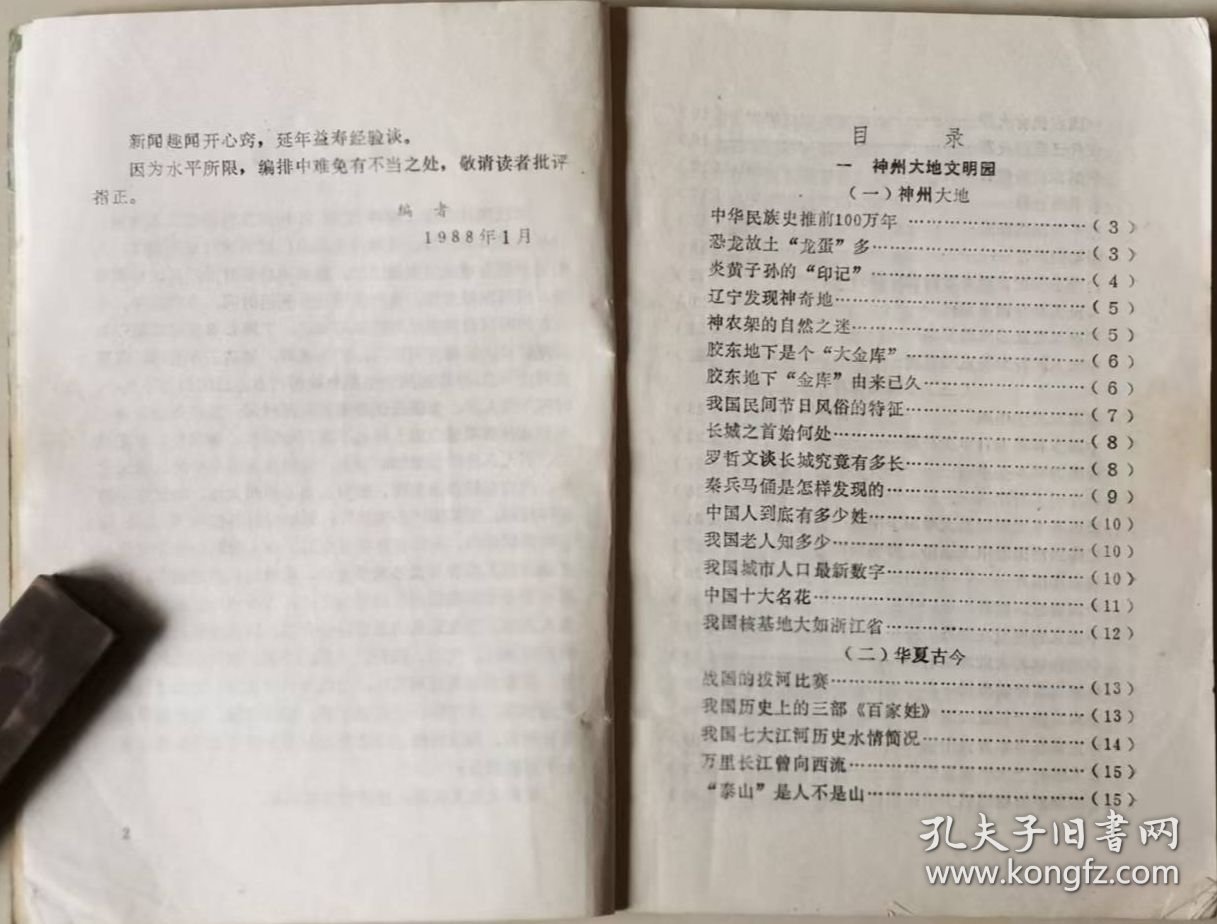 新闻趣闻开心窍，延年益寿经验谈。
因为水平所限，编排中难免有不当之处，敬请读者批评
指正。
编者
1988年1月
2
目 录
一 神州大地文明园
（一）神州大地
中华民族史推前100万年…………（3）
恐龙故土“龙蛋”多…………（3）
炎黄子孙的“印记”…………（4）
辽宁发现神奇地…………（5）
神农架的自然之迷…………（5）
胶东地下是个“大金库”…………（6）
胶东地下“金库”由来已久…………（6）
我国民间节日风俗的特征…………（7）
长城之首始何处…………（8）
罗哲文谈长城究竟有多长…………（8）
秦兵马俑是怎样发现的…………（9）
中国人到底有多少姓…………（10）
我国老人知多少…………（10）
我国城市人口最新数字…………（10）
中国十大名花…………（11）
我国核基地大如浙江省…………（12）
（二）华夏古今
战国的拔河比赛…………（13）
我国历史上的三部《百家姓》…………（13）
我国七大江河历史水情简况…………（14）
万里长江曾向西流…………（15）
“泰山”是人不是山…………（15）
孔夫子旧书网
www.kongfz.com